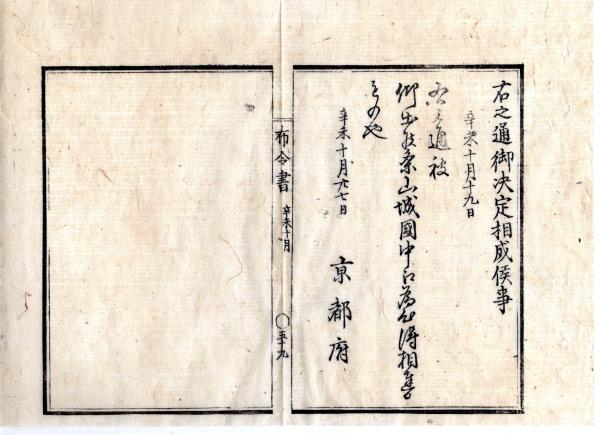 右之通御決定相成候事
辛未十月十九日
右之通被
仰出候条山城國中江為心得相達
もの也
辛未十月廿七日
京都府
布令書
辛未十月
五十九